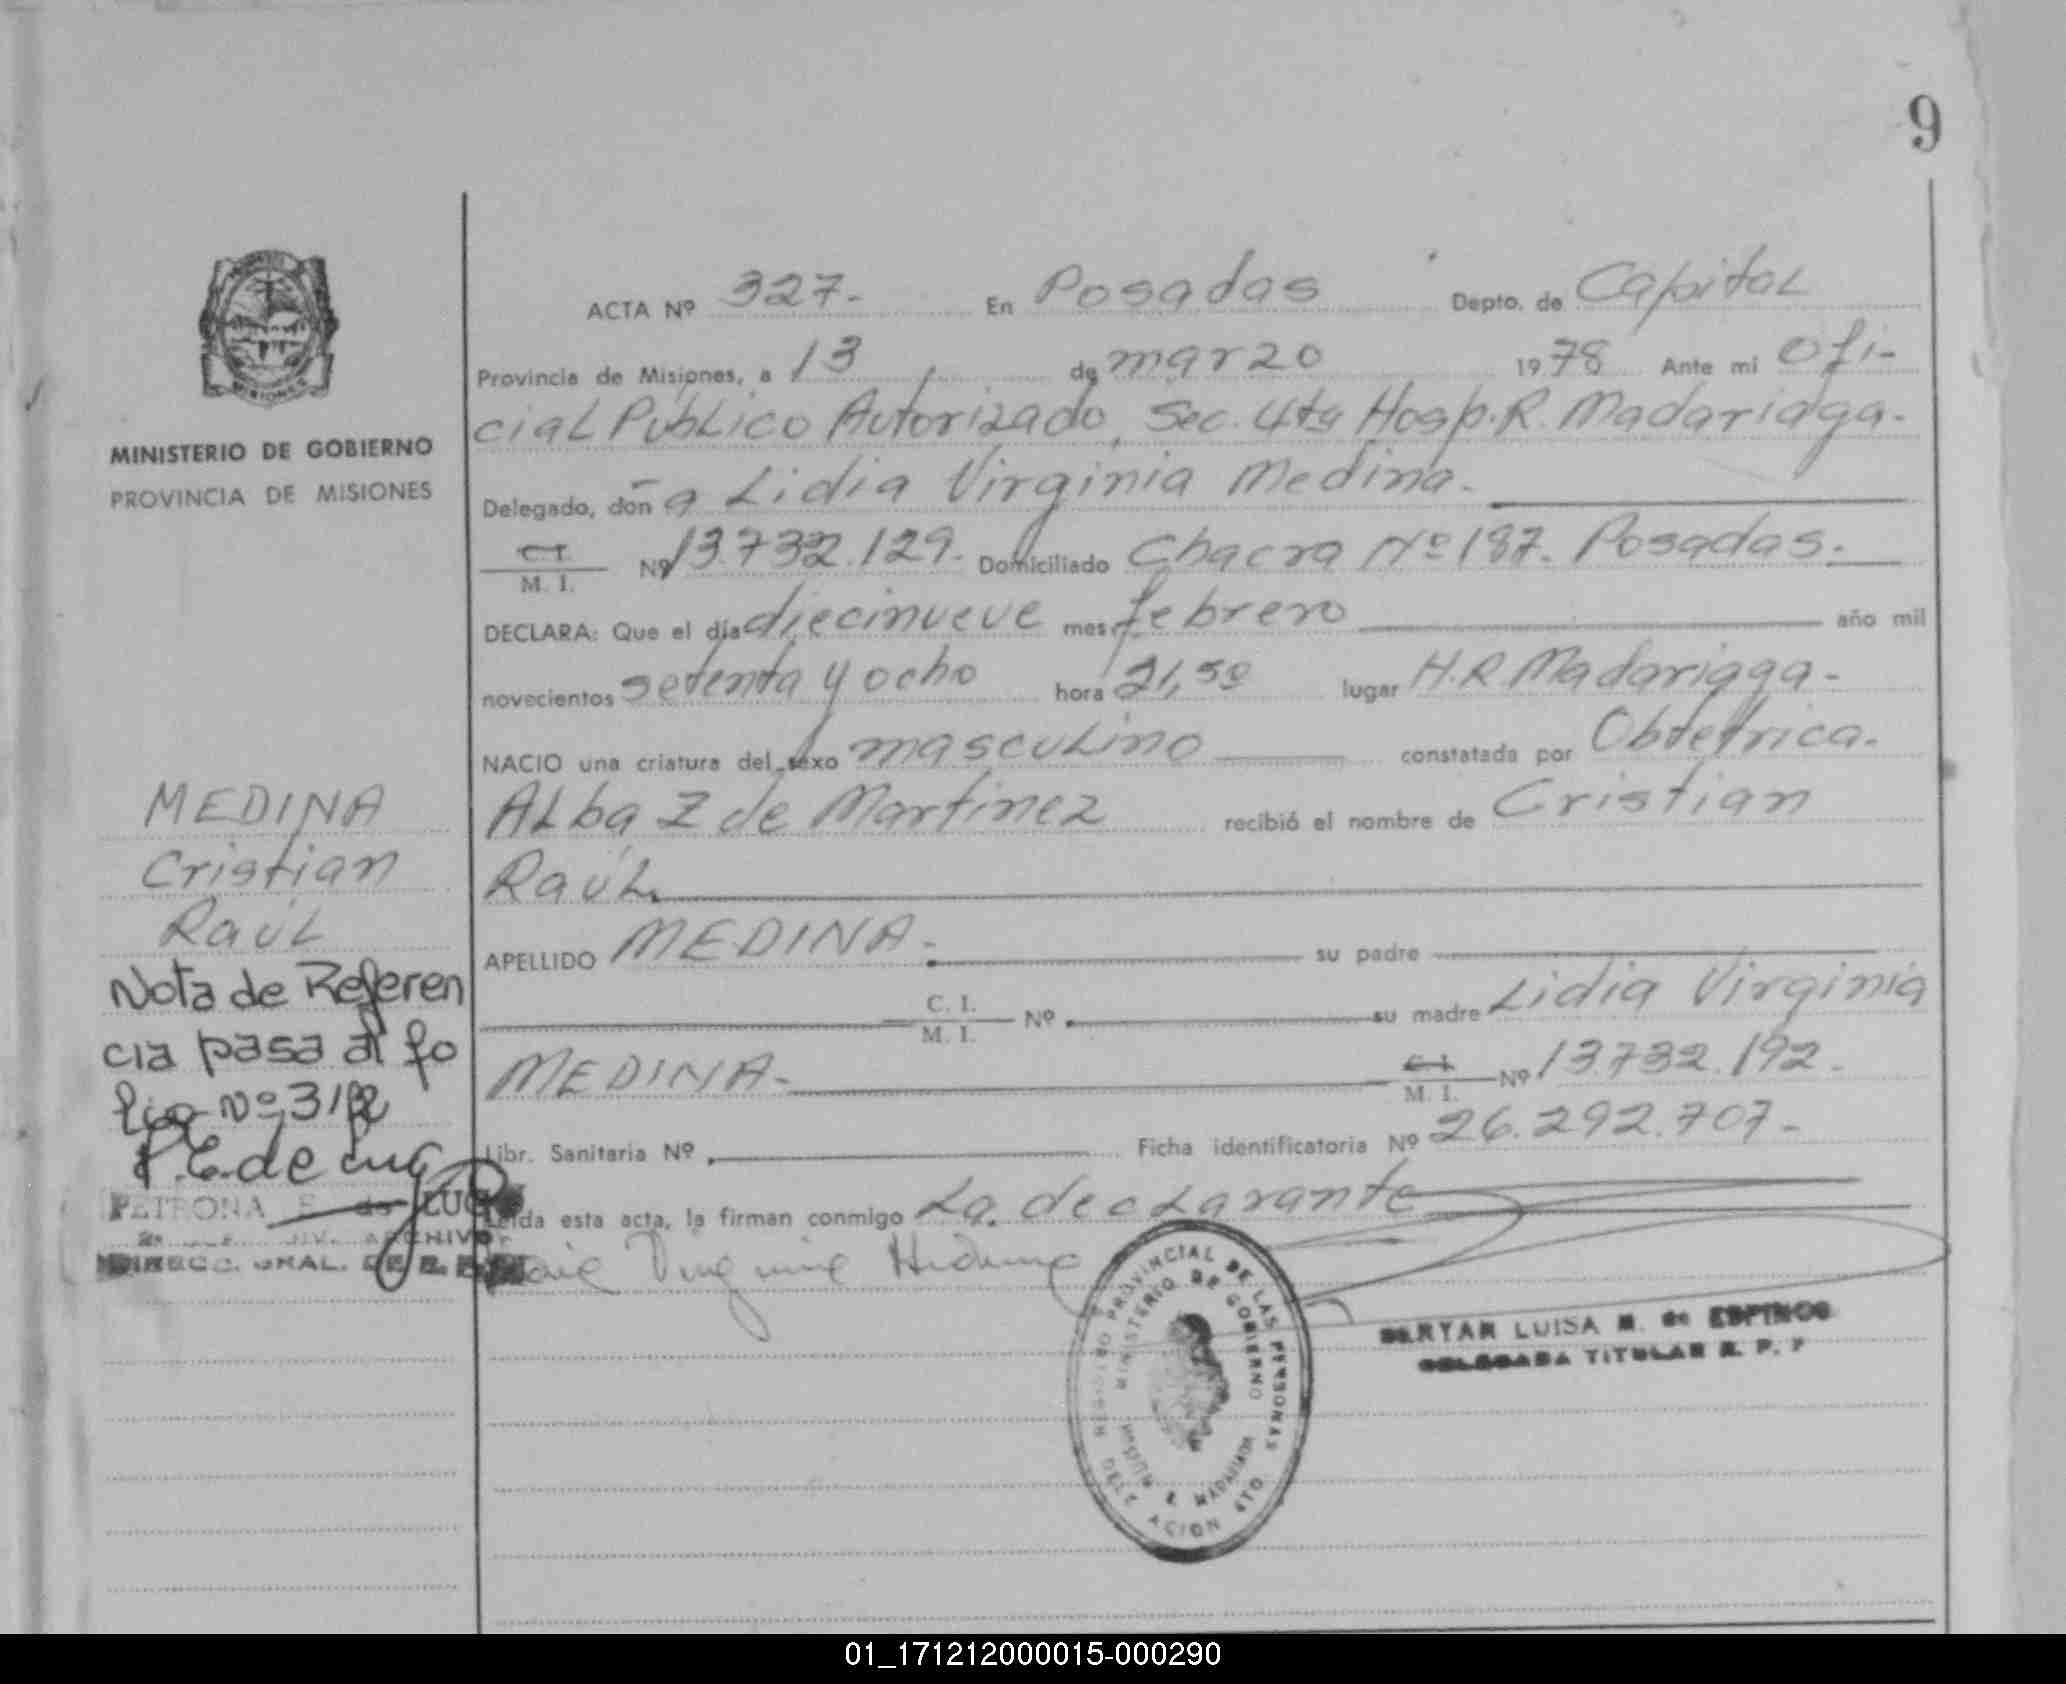 9
ACTA Nº 327.- En Posadas Depto. de Capital
Provincia de Misiones, a 13 de marzo 1978 Ante mi Ofi-
cial Público Autorizado, Sec. 4ta Hosp. R. Madariaga.
Delegado, doña Lidia Virginia Medina.-
C I
M. I. Nº 13.732.129.- Domiciliado Chacra Nº 187. Posadas.-
DECLARA: Que el día diecinueve mes febrero año mil
novecientos setenta y ocho hora 21,50 lugar H.R Madariaga.-
NACIO una criatura del sexo masculino constatada por Obtetrica.
Alba Z de Martinez recibió el nombre de Cristian
Raúl.
APELLIDO MEDINA.- su padre
C. I.
M. I. Nº su madre Lidia Virginia
MEDINA.- C. I.
M. I. Nº 13.732.192.-
Libr. Sanitaria Nº Ficha identificatoria Nº 26.292.707.-
Leída esta acta, la firman conmigo La declarante
MINISTERIO DE GOBIERNO
PROVINCIA DE MISIONES
MISIONES
MEDINA
Cristian
Raúl
Nota de Referen
cia pasa al fo
lio Nº 312
P.E. de Lug
PETRONA E. de LUGO
DIV. ARCHIVO
DIRECC. GRAL. DE
REGISTRO PROVINCIAL DE LAS PERSONAS
MINISTERIO DE GOBIERNO
HOSPIT R. MADARIAGA
DELEGACION 4TO.
LUISA M. de ESPINOS
DELEGADA TITULAR R. P. P
01_171212000015-000290